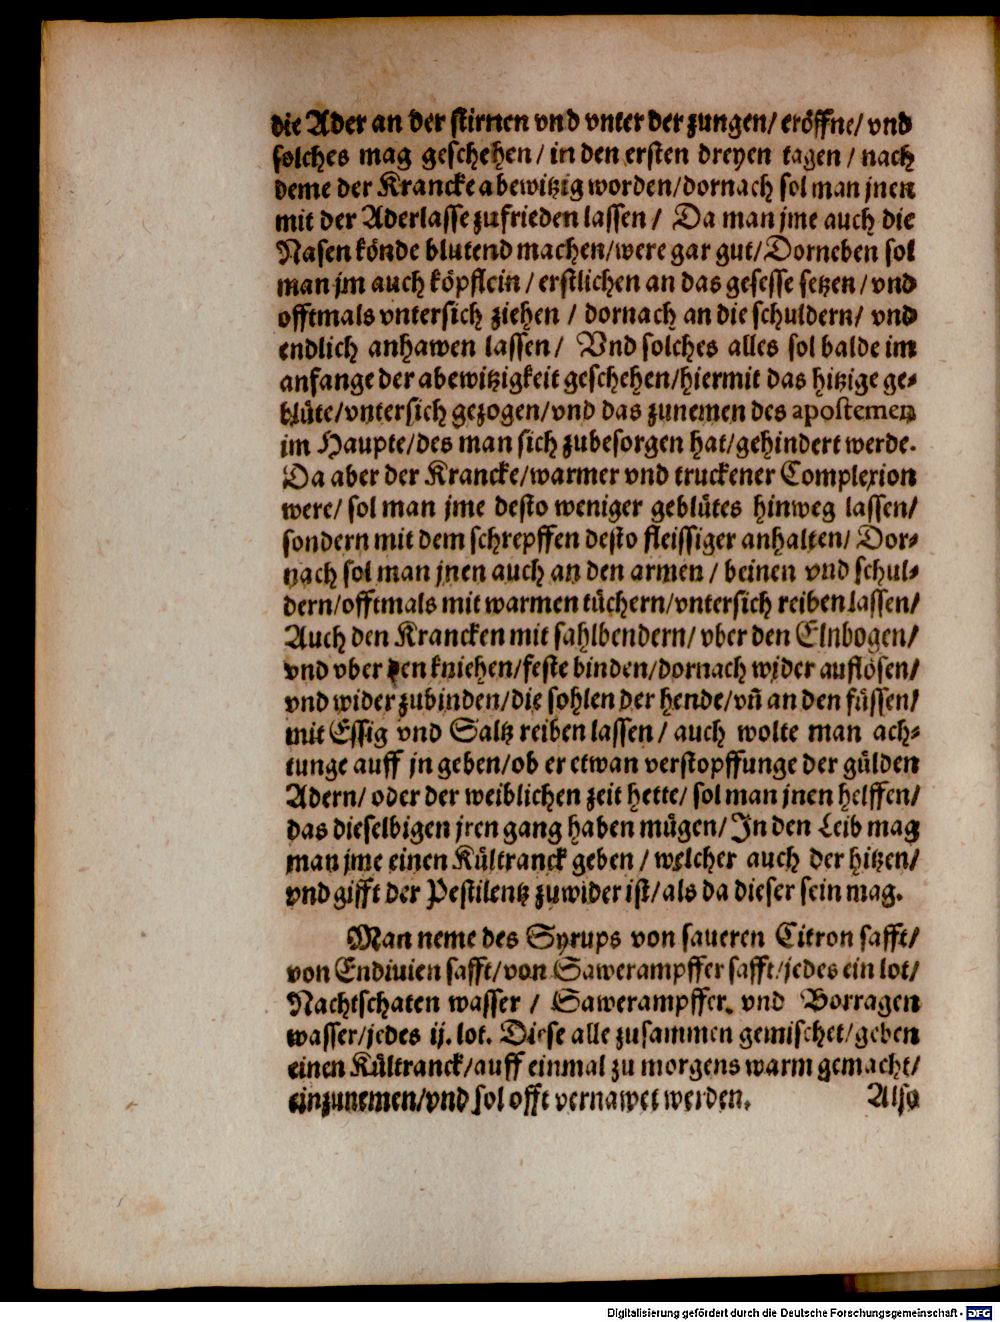 die Ader an der stirnen vnd vnter der zungen/ eröffne/ vnd
solches mag geschehen/ in den ersten dreyen tagen / nach
deme der Krancke abewitzig worden/dornach sol man jnen
mit der Aderlasse zufrieden lassen / Da man jme auch die
Nasen könde blutend machen/were gar gut/Dorneben sol
man jm auch köpflein / erstlichen an das gesesse setzen/ vnd
offtmals vntersich ziehen / dornach an die schuldern/ vnd
endlich anhawen lassen/ Vnd solches alles sol balde im
anfange der abewitzigkeit geschehen/hiermit das hitzige ge-
blüte/vntersich gezogen/vnd das zunemen des apostemen
im Haupte/des man sich zubesorgen hat/gehindert werde.
Da aber der Krancke/warmer vnd truckener Complexion
were/ sol man jme desto weniger geblütes hinweg lassen/
sondern mit dem schrepffen desto fleissiger anhalten/ Dor-
nach sol man jnen auch an den armen / beinen vnd schul-
dern/offtmals mit warmen tüchern/vntersich reiben lassen/
Auch den Krancken mit sahlbendern/ vber den Elnbogen/
vnd vber den kniehen/feste binden/dornach wider auflösen/
vnd wider zubinden/die sohlen der hende/vñ an den füssen/
mit Essig vnd Saltz reiben lassen / auch wolte man ach-
tunge auff jn geben/ob er etwan verstopffunge der gülden
Adern/ oder der weiblichen zeit hette/ sol man jnen helffen/
das dieselbigen jren gang haben mügen/ In den Leib mag
man jme einen Kültranck geben / welcher auch der hitzen/
vnd gifft der Pestilentz zuwider ist/als da dieser sein mag.
Man neme des Syrups von saueren Citron safft/
von Endiuien safft/von Sawerampffer safft/jedes ein lot/
Nachtschaten wasser / Sawerampffer. vnd Borragen
wasser/jedes ij. lot. Diese alle zusammen gemischet/geben
einen Kültranck/auff einmal zu morgens warm gemacht/
einzunemen/vnd sol offt vernawet werden. Also
Digitalisierung gefördert durch die Deutsche Forschungsgemeinschaft - DFG